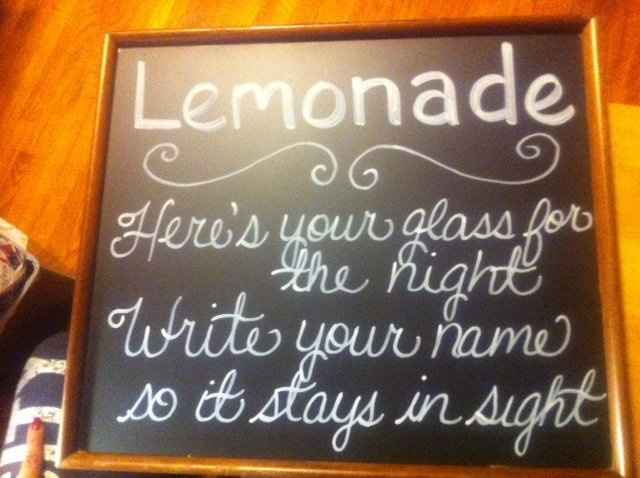 Lemonade
Here's your glass for
the night
Write your name
so it stays in sight